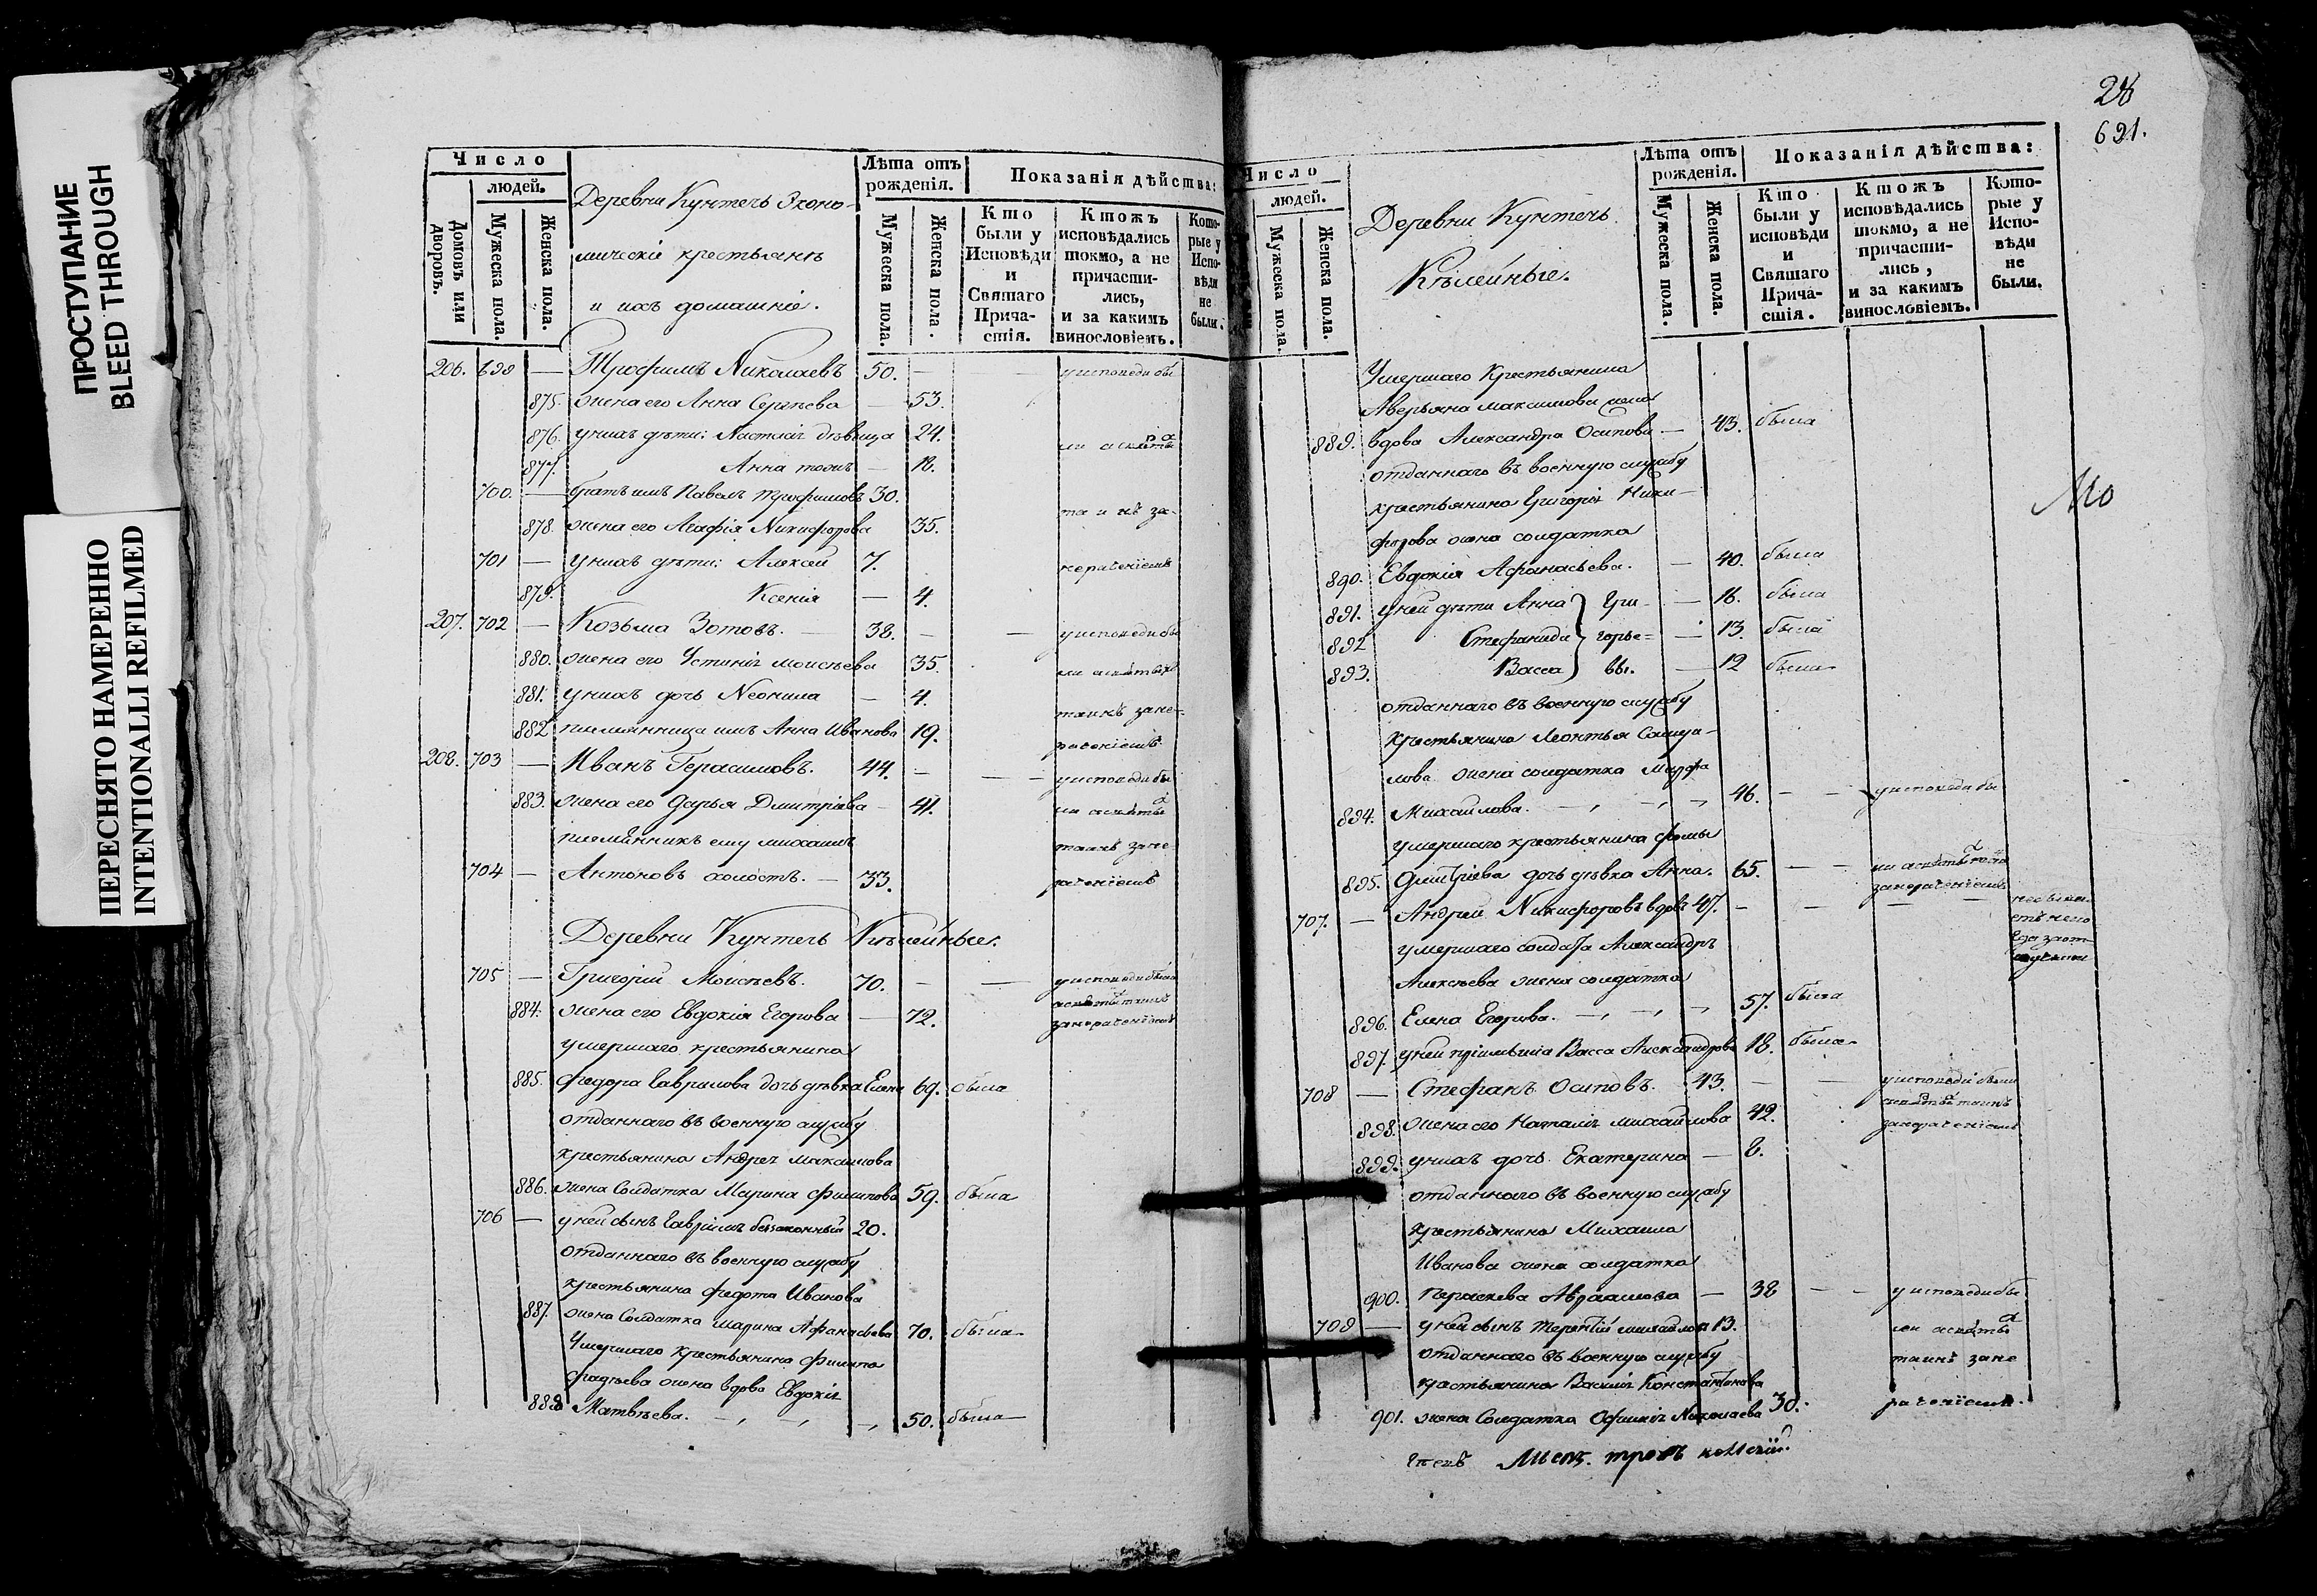 ПРОСТУПАНИЕ
BLEED THROUGH
ПЕРЕСНЯТО НАМЕРЕННО
INTENTIONALLI REFILMED
Число
людей.
Домовъ или дворовъ.
Мужеска пола.
Женска пола.
Деревни Кунтечь Эконо-
мическiе крестьянъ
и ихъ домашнiе.
Лѣта отъ рожденiя.
Мужеска пола.
Женска пола.
Показанiя дѣйства:
Кто были у Исповѣди и Святаго Прича-стiя.
Ктожъ исповѣдались токмо, а не причасти-лись, и за какимъ винословiемъ.
Кото-рые у Испо-вѣди не были.
206. 699 — Трофимъ Николаевъ 50. — — у исповеди бы
875. жена его Анна Сергѣева — 53.
876. у нихъ дѣти: Настасiя дѣвица 24.
877. Анна — 18.
700. — братъ имъ Павелъ Трофимовъ 30.
878. жена его Агафiя Никифорова 35.
701 — у нихъ дѣти: Алексѣй 7. нераченiемъ
879. Ксенiя — 4.
207. 702 — Козьма Зотовъ. — 38. — — у исповеди бы
880. жена его Устинiя Моисѣева 35.
881. у нихъ дочь Неонила — 4. таинъ зане-
882 племянница имъ Анна Иванова 19. раченiемъ
208. 703 — Иванъ Герасимовъ. 44. — — у исповеди бы
883. жена его Дарья Дмитрiева — 41.
племянникъ ему Михаилъ таинъ зане
704 — Антоновъ холостъ. — 33. раченiемъ
Деревни Кунтечь Кѣлейные.
705 — Григорiй Моисѣевъ. 70. — — у исповеди были
884. жена его Евдокiя Егорова — 72. занераченiемъ
умершаго крестьянина
885. Федора Гаврилова дочь дѣвка Елена 69. была
отданнаго въ военную службу
крестьянина Андрея Максимова
886. жена Солдатка Марина Филипова 59. была
706 — у ней сынъ Гаврiилъ беззаконный 20.
отданнаго въ военную службу
крестьянина Федота Иванова
887. жена Солдатка Марина Афанасьева 70. была
Умершаго крестьянина Филипа
Фадѣева жена вдова Евдокiя
888 Матвѣева. — 50. была
28
691.
Число
людей.
Мужеска пола.
Женска пола.
Деревни Кунтечь.
Кѣлейные.
Лѣта отъ рожденiя.
Мужеска пола.
Женска пола.
Показанiя дѣйства:
Кто были у исповѣди и Святаго Прича-стiя.
Ктожъ исповѣдались токмо, а не причасти-лись, и за какимъ винословiемъ.
Кото-рые у Испо-вѣди не были.
Умершаго Крестьянина
Аверьяна Максимова жена
889. вдова Александра Осипова — 43. была
отданнаго въ военную службу
крестьянина Григорiя Ники-
форова жена солдатка
890. Евдокiя Афанасьева. — 40. была
891. у ней дѣти Анна Гри- — 16. была
892 Стефанида горье- — 13. была
893. Васса вы. — 12 была
отданнаго въ военную службу
крестьянина Леонтья Самуи-
лова жена солдатка Марфа
894. Михайлова. — 46. — — у исповеди бы
умершаго крестьянина Фомы
895. Дмитрiева дочь дѣвка Анна. 65. — —
занераченiемъ
707. — Андрей Никифоровъ вдовъ 47. — —
умершаго солдата Александръ
Алексѣева жена солдатка
896. Елена Егорова. — 57. была
897. у ней прiимышъ Васса Александрова 18. была
708 — Стефанъ Осиповъ. 43. — — у исповеди были
898. жена его Наталiя Михайлова 42. занераченiемъ
899. у нихъ дочь Екатерина — 8.
отданнаго въ военную службу
крестьянина Михаила
Иванова жена солдатка
900. Параскева Авраамова — 38 — — у исповеди бы
709 — у ней сынъ Терентiй Михайловъ 13.
отданнаго въ военную службу таинъ зане
крестьянина Василiя Константинова раченiемъ.
901. жена Солдатка Офимiя Николаева 30.